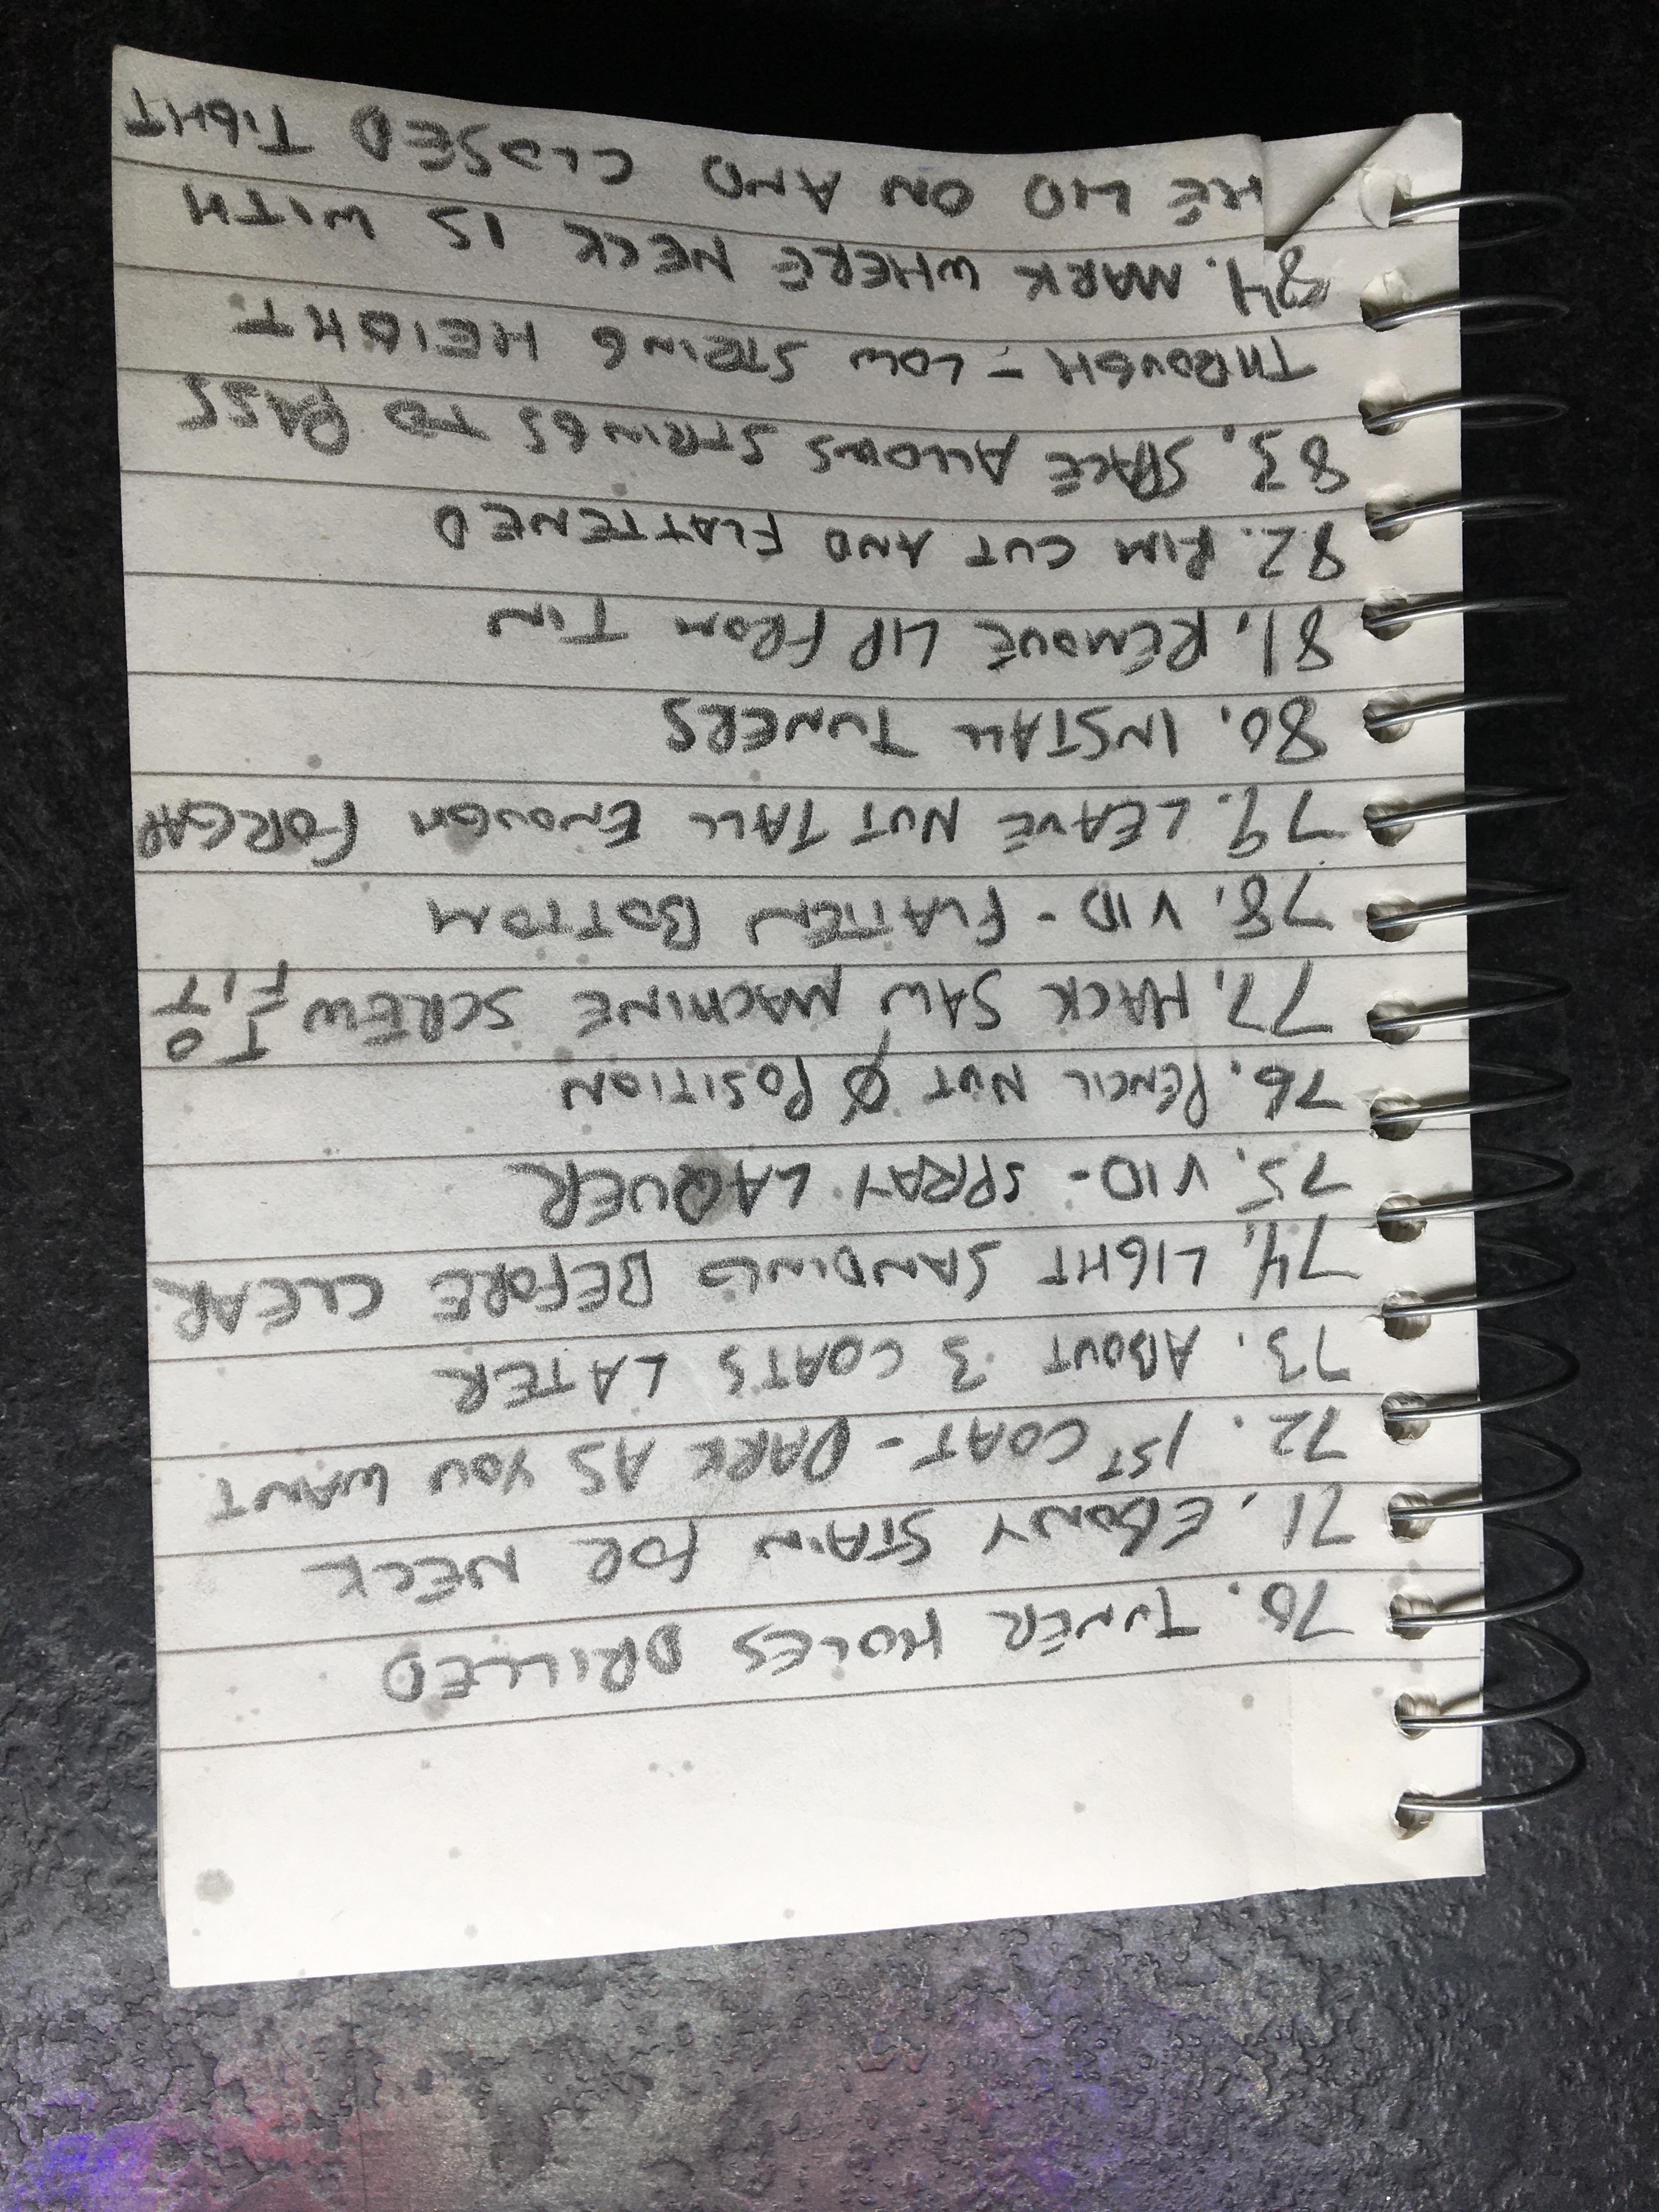 70. TUNER HOLES DRILLED
71. EBONY STAIN FOR NECK
72. 1ST COAT - DARK AS YOU WANT
73. ABOUT 3 COATS LATER
74. LIGHT SANDING BEFORE CLEAR
75. VID - SPRAY LAQUER
76. PENCIL NUT POSITION
77. HACK SAW MACHINE SCREW TO FIT
78. VID - FLATTEN BOTTOM
79. LEAVE NUT TALL ENOUGH FOR GAP
80. INSTALL TUNERS
81. REMOVE LIP FROM TIN
82. RIM CUT AND FLATTENED
83. SPACE ALLOWS STRINGS TO PASS
THROUGH - LOW STRING HEIGHT.
84. MARK WHERE NECK IS WITH
HE LID ON AND CLOSED TIGHT